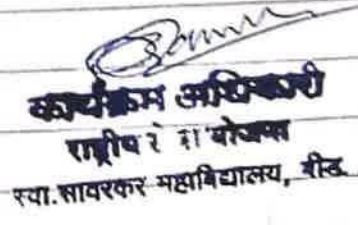 कार्यक्रम अधिकारी
राष्ट्रीय योजना
स्वा. सावरकर महाविद्यालय, बीड